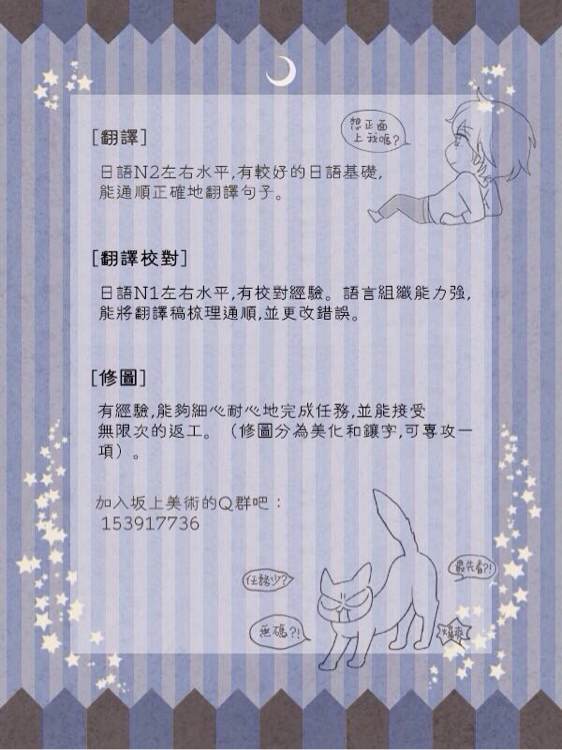 想正面
上我嗎?
[翻譯]
日語N2左右水平,有較好的日語基礎,
能通順正確地翻譯句子。
[翻譯校對]
日語N1左右水平,有校對經驗。語言組織能力強,
能將翻譯稿梳理通順,並更改錯誤。
[修圖]
有經驗,能夠細心耐心地完成任務,並能接受
無限次的返工。（修圖分為美化和鑲字,可專攻一
項）。
加入坂上美術的Q群吧：
153917736
任務少?
最先看?!
無碼?!